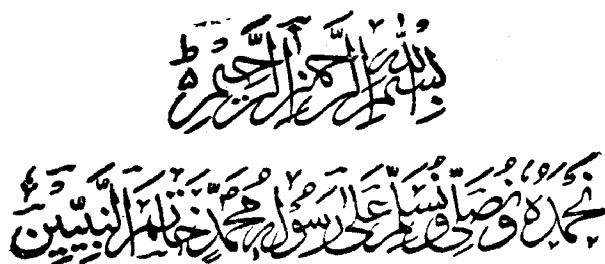 بِسْمِ اللّٰهِ الرَّحْمٰنِ الرَّحِيْمِ ط
نَحْمَدُهٗ وَنُصَلِّىْ وَنُسَلِّمُ عَلٰى رَسُوْلِهٖ مُحَمَّدٍ خَاتَمِ النَّبِيّٖنَ